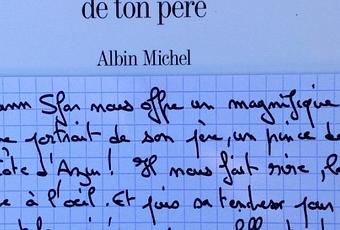 de ton père
Albin Michel
ann Sfar nous offre un magnifique
portrait de son père, un prince de
ôte d'Azur ! Il nous fait rire, la
e à l'œil. Et puis sa tendresse pour